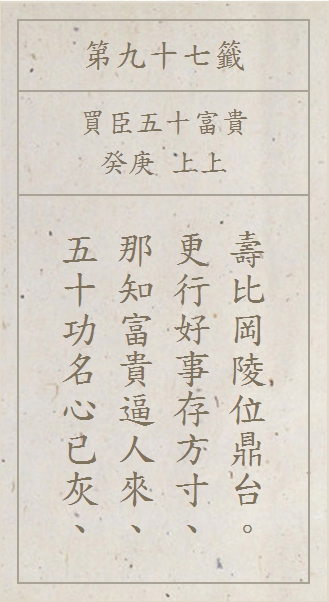 第九十七籤
買臣五十富貴
癸庚 上上
五十功名心已灰、
那知富貴逼人來、
更行好事存方寸、
壽比岡陵位鼎台。